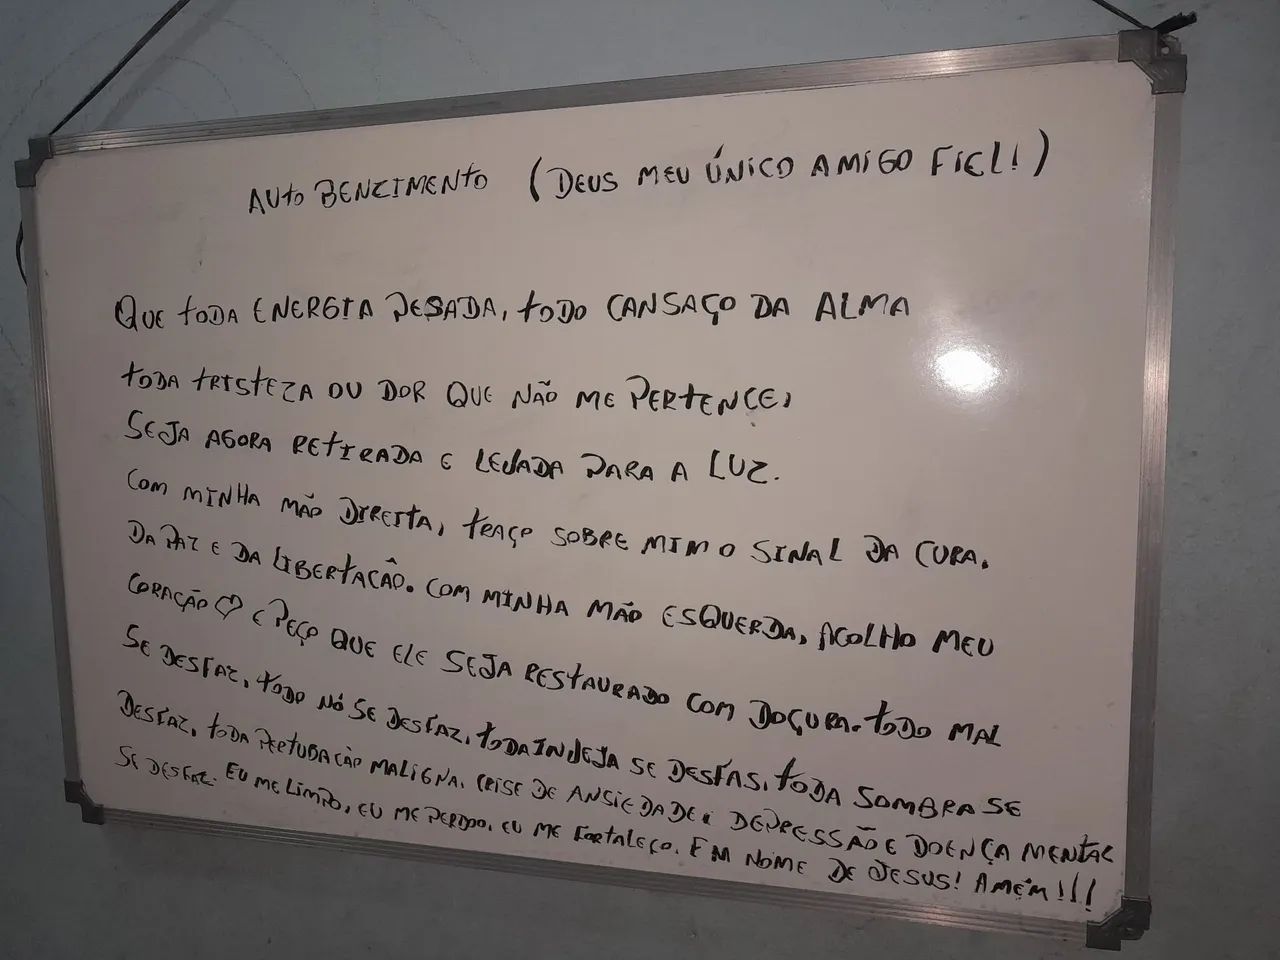 AUTO BENZIMENTO (DEUS MEU ÚNICO AMIGO FIEL!)
QUE TODA ENERGIA PESADA, TODO CANSAÇO DA ALMA
TODA TRISTEZA OU DOR QUE NÃO ME PERTENCE,
SEJA AGORA RETIRADA E LEVADA PARA A LUZ.
COM MINHA MÃO DIREITA, TRAÇO SOBRE MIM O SINAL DA CURA,
DA PAZ E DA LIBERTAÇÃO. COM MINHA MÃO ESQUERDA, ACOLHO MEU
CORAÇÃO ♡ E PEÇO QUE ELE SEJA RESTAURADO COM DOÇURA. TODO MAL
SE DESFAZ, TODO NÓ SE DESFAZ, TODA INVEJA SE DESFAS, TODA SOMBRA SE
DESFAZ, TODA PERTUBAÇÃO MALIGNA, CRISE DE ANSIEDADE, DEPRESSÃO E DOENÇA MENTAL
SE DESFAZ. EU ME LIMPO, EU ME PERDOO, EU ME FORTALEÇO. EM NOME DE JESUS! AMÉM!!!